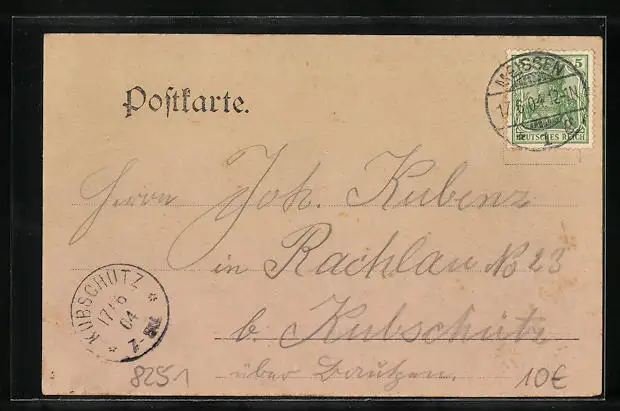 MEISSEN
17/6 04 12-1N
1 d
5
DEUTSCHES REICH
Postkarte.
Herrn Joh. Kubenz
in Rachlau No 23
b. Kubschütz
über Bautzen.
KUBSCHÜTZ
17/6
04
7-8N
8251
10€